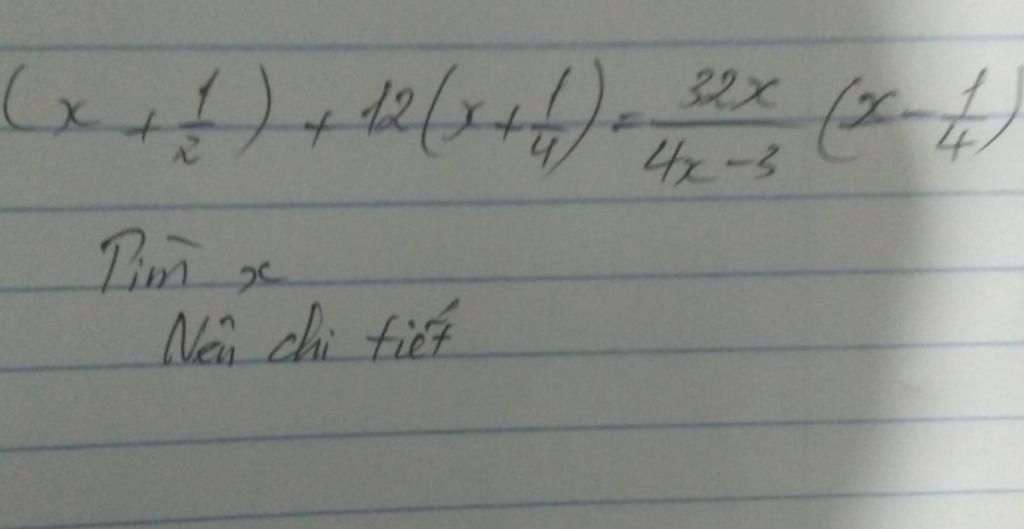 (x + 1/2) + 12(x + 1/4) = 32x/4x - 3 (x - 1/4)
Tìm x
Nên chi tiết